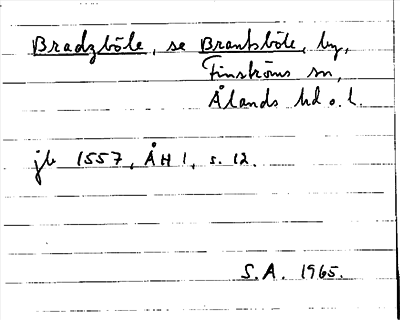 Bradzböle, se Brantsböle, by,
Finströms sn,
Ålands hd o. l.
jb 1557, ÅH 1, s. 12.
S.A. 1965.